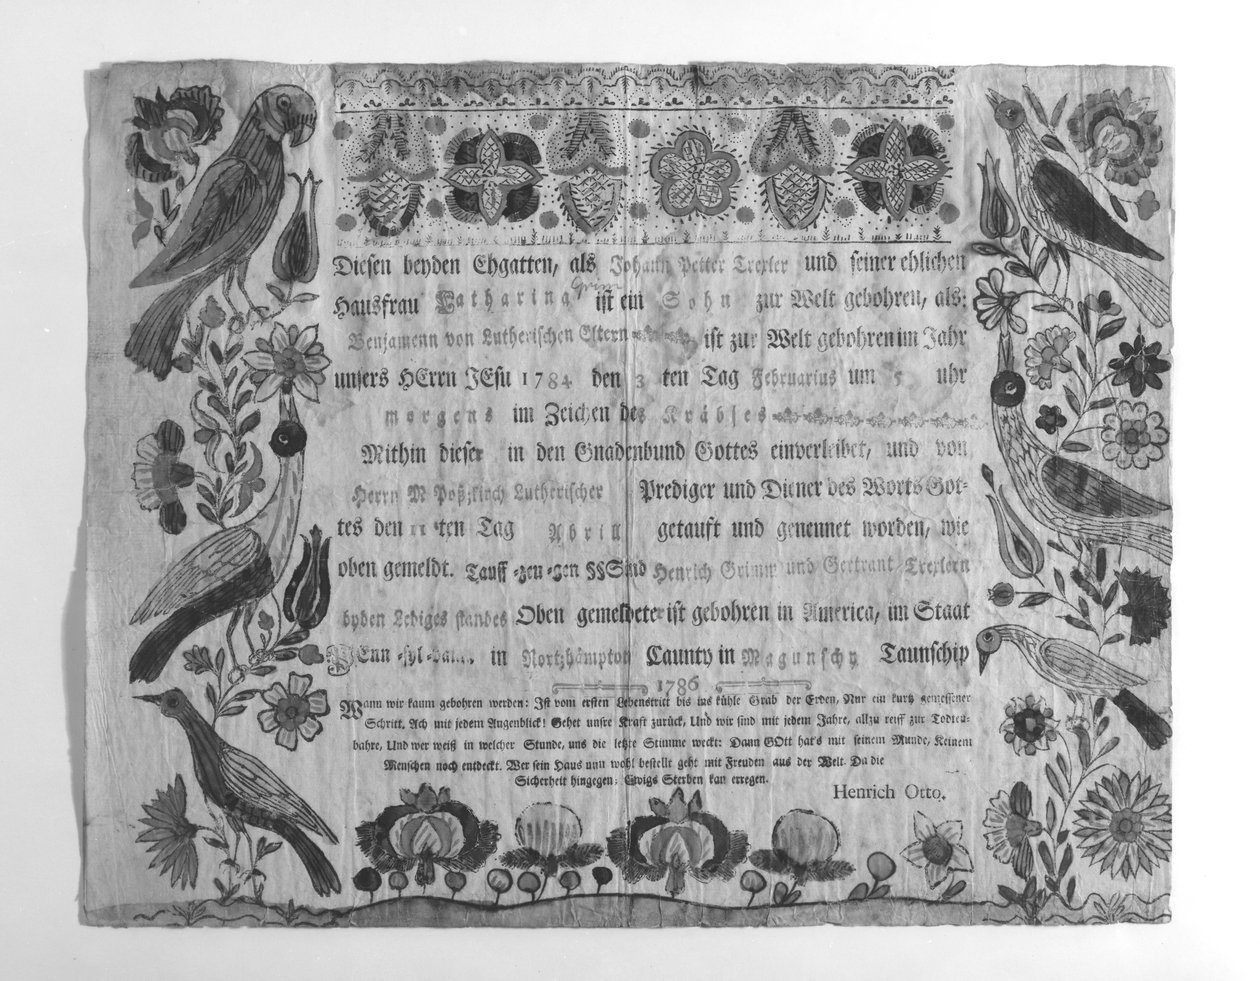 Diesen beyden Ehgatten, als Johann Petter Trexler und seiner ehlichen
Grim
Hausfrau Catharina ist ein Sohn zur Welt gebohren, als:
Benjamenn von Lutherischen Eltern ist zur Welt gebohren im Jahr
unsers HErrn JEsu 1784 den 3 ten Tag Februarius um 5 uhr
morgens im Zeichen des Kräbses
Mithin dieser in den Gnadenbund Gottes einverleibet, und von
Herrn M Poßkirch Lutherischer Prediger und Diener des Worts Got-
tes den 11 ten Tag Abrill getauft und genennet worden, wie
oben gemeldt. Tauff-zeu-gen Sind Henrich Grimm und Gertraut Trexlern
byden Lediges standes Oben gemeldeter ist gebohren in America, im Staat
Penn-syl-vani, in Nortzhämpton Caunty in Magunschy Taunschip
1786
Wann wir kaum gebohren werden: Ist vom ersten Lebenstritt bis ins kühle Grab der Erden, Nur ein kurtz gemessener
Schritt, Ach mit jedem Augenblick! Gehet unsre Kraft zurück, Und wir sind mit jedem Jahre, allzu reiff zur Todten-
bahre, Und wer weiß in welcher Stunde, uns die letzte Stimme weckt: Dann GOtt hat's mit seinem Munde, Keinem
Menschen noch entdeckt. Wer sein Haus nun wohl bestellt geht mit Freuden aus der Welt. Da die
Sicherheit hingegen: Ewigs Sterben kan erregen.
Henrich Otto.